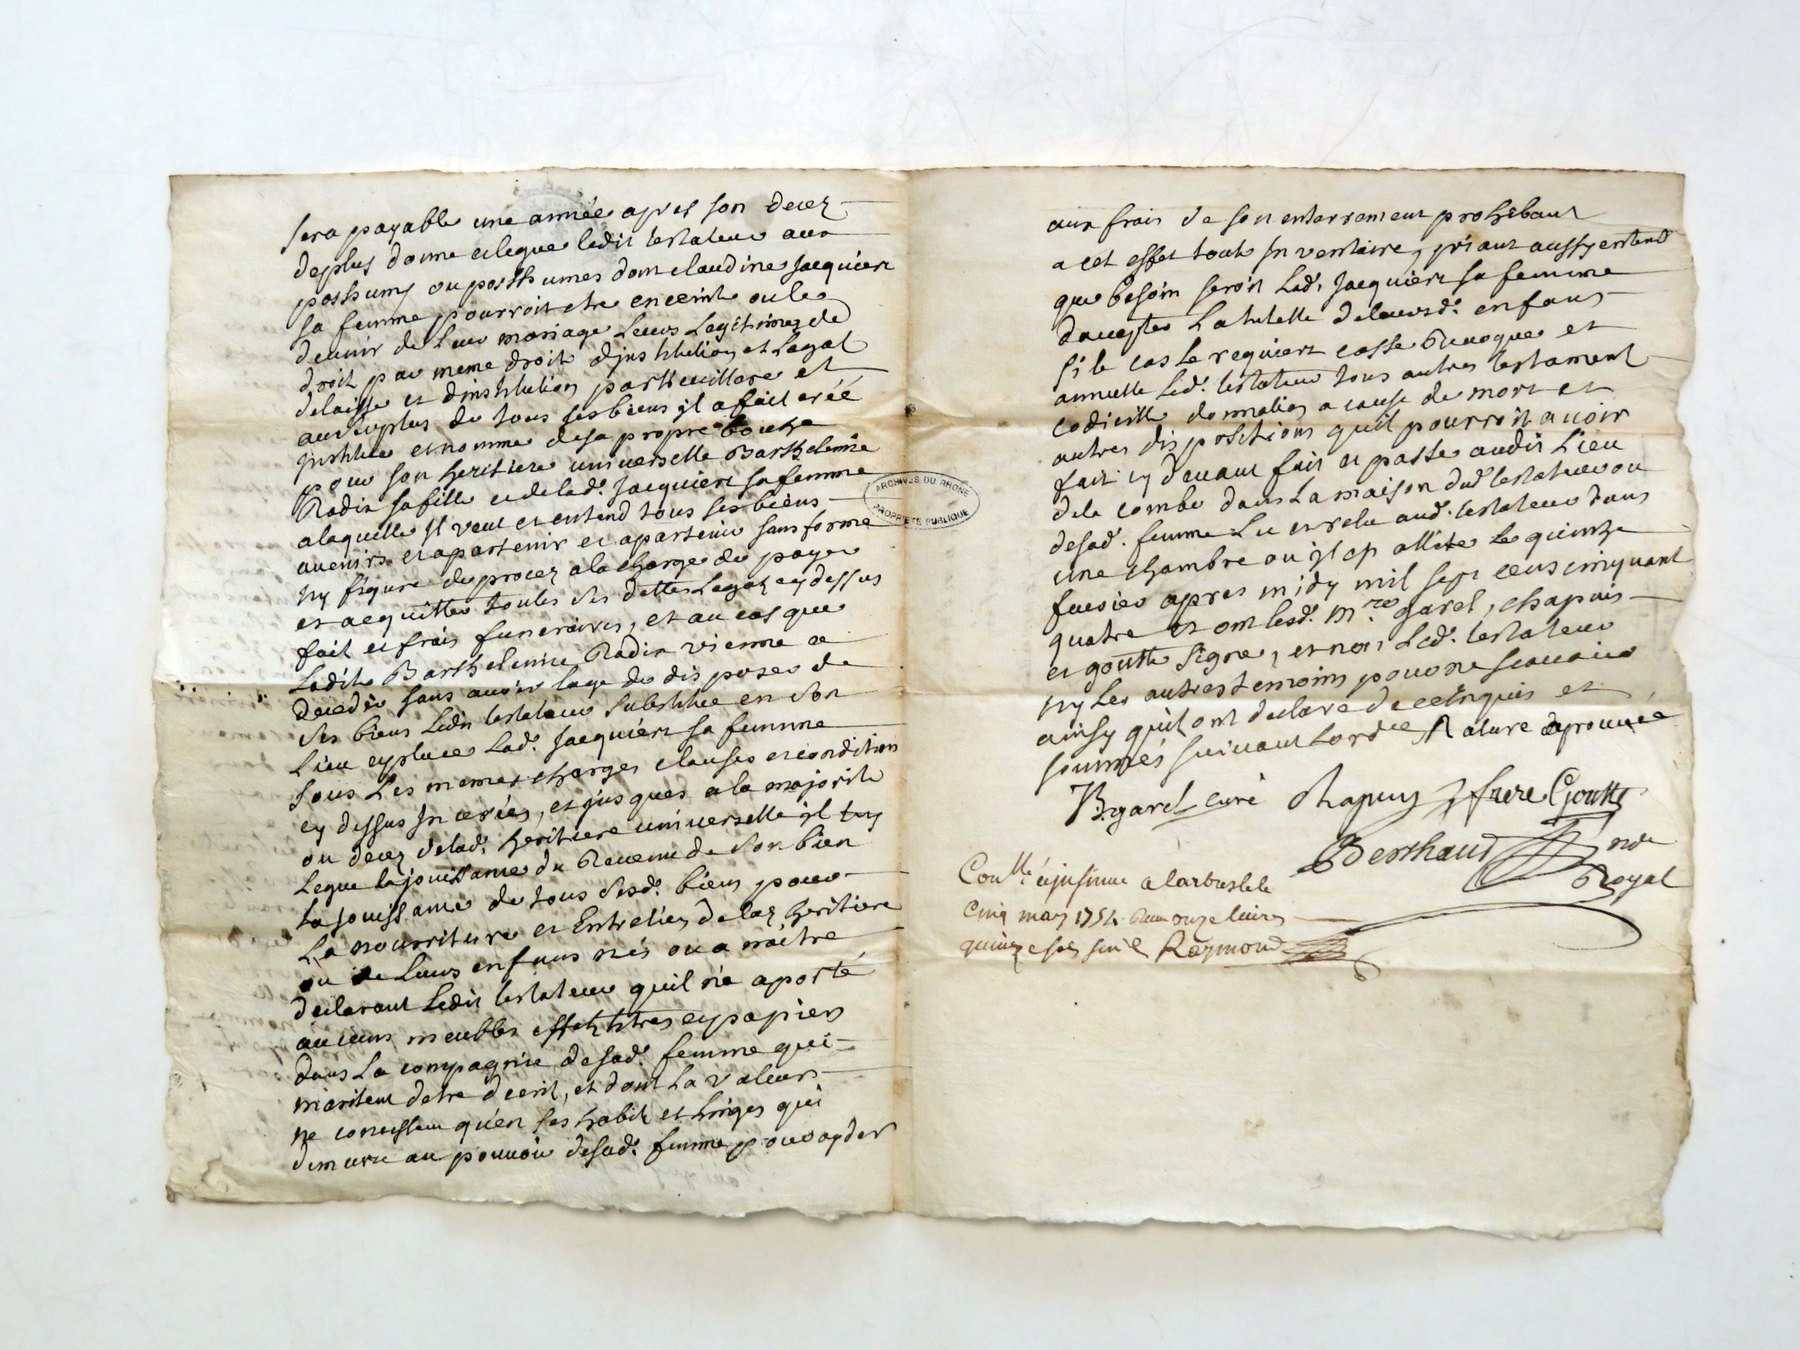 sera payable une année apres son decez
deplus donne et legue ledit testateur aux
posthumes ou posthumes dont claudine Jacquiert
sa femme pourroit etre enceinte ou le
devenir de leur mariage Leurs Legitimes de
droit par meme droit dinstitution et Legat
delaisse et dinstitution particuillere et
au surplus de tous ses biens il a fait créé
institué et nommé de sa propre bouche
pour son heritiere universelle Barthelemie
Radix sa fille et de lad. Jacquiert sa femme
a laquelle Il veut et entend tous ses biens
avenirs et apartenir et apartenir sans forme
ny figure de procez a la charge de payer
et acquitter toutes ses dettes Legaz cy dessus
fait et frais funeraires, et au cas que
Ladite Barthelemie Radix vienne a
decedér sans avoir lage de disposer de
ses biens Ledit testateur substitue en son
Lieu et place Lad. Jacquiert sa femme
sous Les memes charges clauses et condition
cy dessus Incerées, et jusques a la majorité
ou decez de lad. heritiere universelle il
Legue la jouissance du Revenu de son bien
La jouissance de tous sesd. biens pour
La nourriture et Entretien de lad. heritiere
ou de Leurs enfans nés ou a naitre
declarant Ledit testateur quil n'a aporté
aucuns meubles effets titres et papiers
dans La compagnie de sad. femme qui
meritent detre decrit, et dont La valeur
ne concistent qu'en ses habits et linges qui
demeure au pouvoir de sad. femme pour ayder
aux frais de son enterrement prohibant
a cet effet tout Inventaire, priant aussy entend
que besoin seroit Lad. Jacquiert sa femme
daccepter La tutelle de leursd. enfans
si le cas le requiert casse Revoque et
annulle Led. testateur tous autres testament
codicille donnation a cause de mort et
autres dispositions quil pourroit avoir
fait cy devant fait et passé audit Lieu
de la combe dans La maison dud. testateur ou
de sad. femme Lu et relu aud. testateur dans
une chambre ou il est allité le quinze
fevrier apres midy mil sept cens cinquant
quatre et ont lesd. Mre garel, chapuis
et goutte signé, et non Led. testateur
ny Les autres temoins pour ne scavoir
ainsy quil ont declaré de ce enquis et
sommés suivant Lordce Rature aprouvée
B. garel curé Chapuy frere Goutte
Berthaud nore
Royal
Conllé et insinué a larbresle le
cinq mars 1754. Receu onze livres
quinze sols Raymond
ARCHIVES DU RHONE
PROPRIETE PUBLIQUE